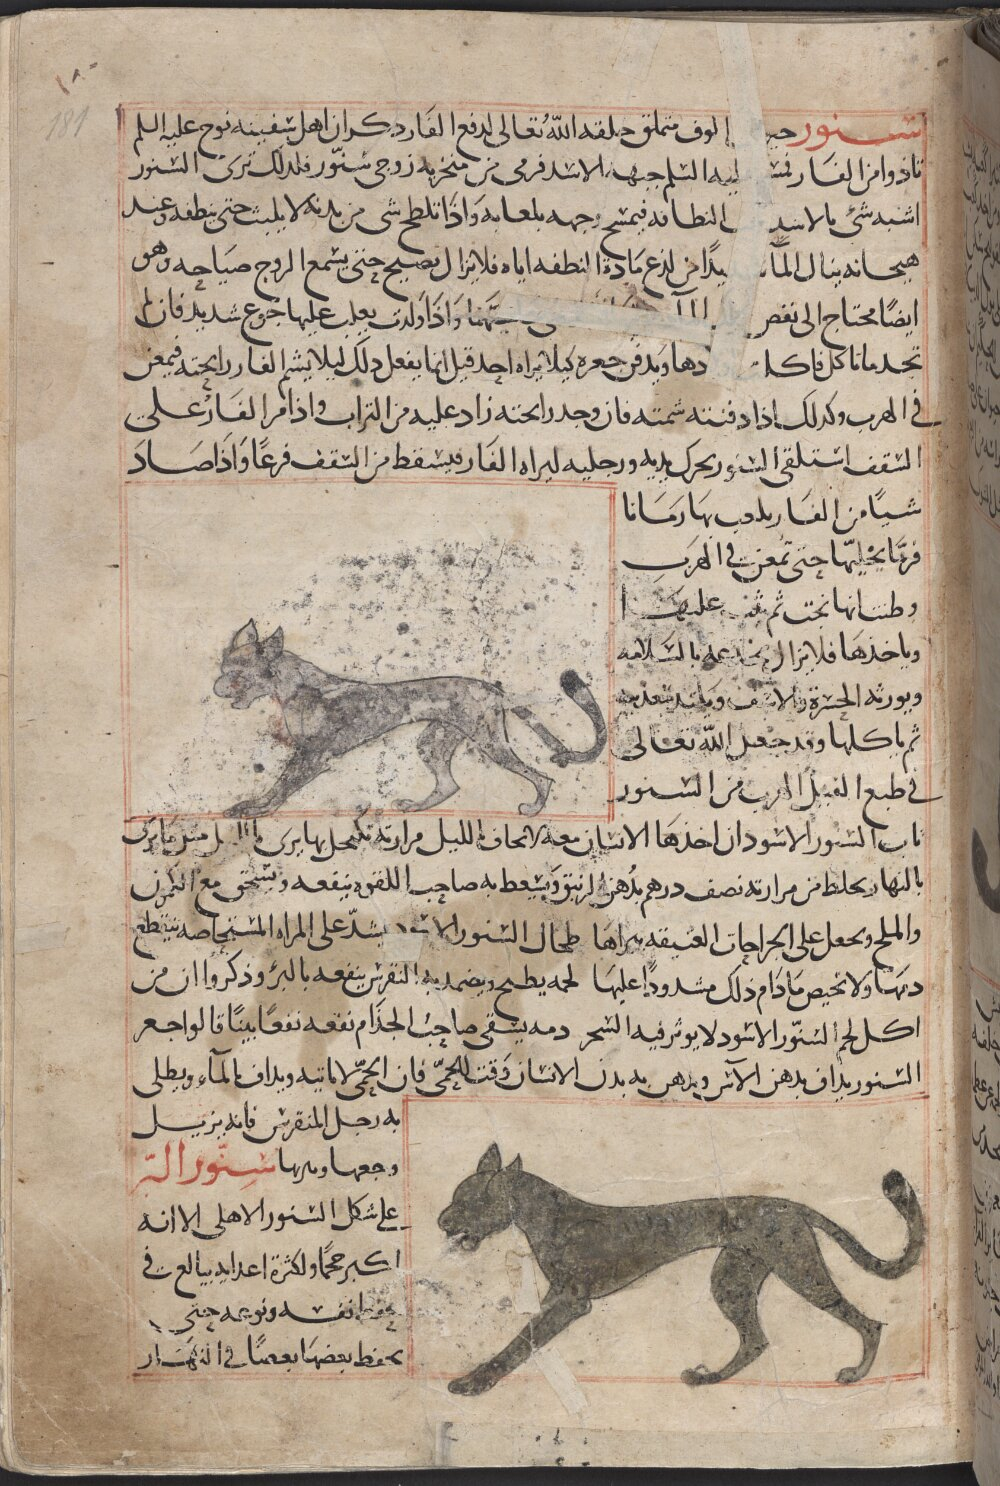 ١٨٠
181
سنور حيوان الوف متملق خلقه الله تعالى لدفع الفار ذكر ان اهل سفينه نوح عليه السلم
تاذوا من الفار فمسح عليه السلم جبهه الاسد فرمى من منخريه زوجى سنّور فلذلك ترى السنور
اشبه شئ بالاسد النظافه فيمسح وجهه بلعابه واذا تلطخ شى من بدنه لا يلبث حتى ينظفه وعند
هيجانه ينال الما شديدًا من لذع مادة النطفه اياه فلا يزال يصيح حتى يسمع الزوج صياحه وهو
ايضًا محتاج الى نفض واذا ولدت يغلب عليها جوع شديد فان لم
تجد ما تاكل فاكلت اولادها ويدفن جعره كيلا يراه احد قيل انما يفعل ذلك ليلا يشم الفار رايحته فيمعن
فى الهرب وكذلك اذا دفنته شمته فان وجد رايحته زاد عليه من التراب واذا مر الفار على
السقف استلقى السنور يحرك يديه ورجليه ليراه الفار فيسقط من السقف فزعًا واذا صاد
شيًا من الفار يلعب بها زمانا
فربما يخليها حتى تمعن فى الهرب
وظنت انها نجت ثم يثب عليها
وياخذها فلا يزال يخدعه بالسلامه
ويورثه الحسرة والاسف ويلتذ بتعذيبه
ثم ياكلها وقد جعل الله تعالى
فى طبع الفيل الهرب من السنور
ناب السنور الاسود ان اخذها الانسان معه لا يخاف بالليل مرارته تكتحل بها يرى بالليل مثل ما يرى
بالنهار يخلط من مرارته نصف درهم بدهن الزنبق ويسعط به صاحب اللقوه ينفعه ويسحق مع الكمون
والملح ويجعل على الجراحات العتيقه يبراها طحال السنور الاسود يشدّ على المراه المستحاضه ينقطع
دمها ولا تحيض ما دام ذلك مشدودًا عليها لحمه يطبخ ويضمد به النقرس ينفعه بالبرؤ وذكروا ان من
اكل لحم السنّور الاسود لا يوثر فيه السحر دمه يسقى صاحب الجذام نفعه نفعًا بينًا قالوا جعر
السنور يداف بدهن الآس ويدهن به بدن الانسان وقت الحمّى فان الحمّى لا تاتيه ويداف بالماء ويطلى
به رجل المنقرس فانه يزيل
وجعها ويبريها سنّور البر
على شكل السنور الاهلى الا انه
اكبر حجمًا ولكثرة اعدايه يبالغ فى
حفظ نفسه ونوعه حتى
يحفظ بعضها بعضًا فى النهار